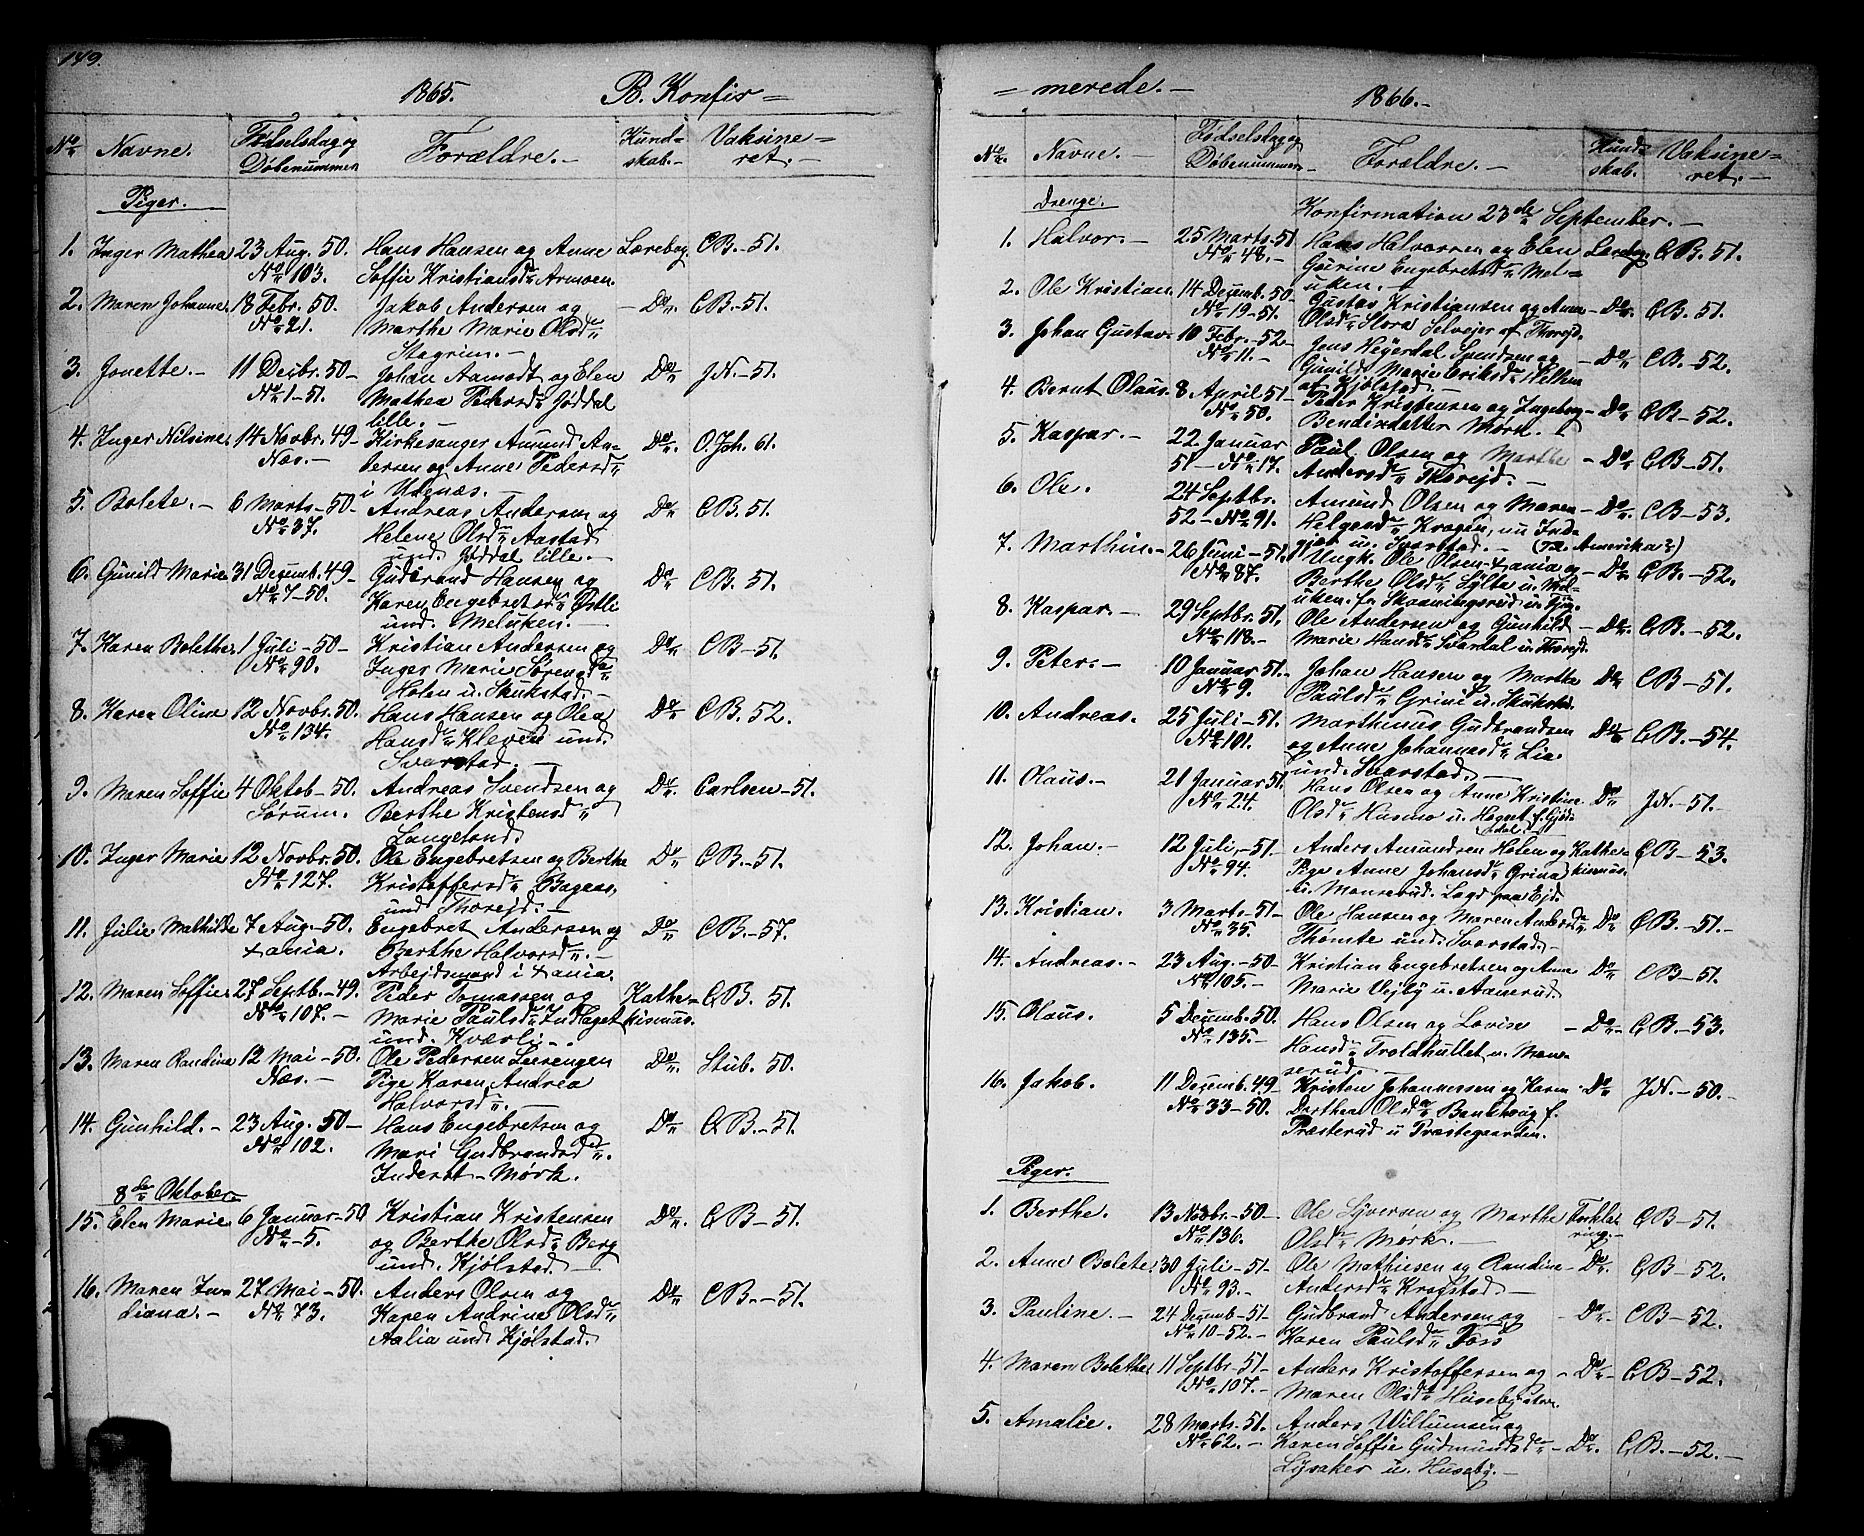 149.
1865. B. Konfir=
No Navne. Fødselsdag og Døbenummer Forældre. Kundskab. Vaksineret.
Piger.
1. Inger Mathea 23 Aug. 50. Hans Hansen og Anne Lærebog CB. 51.
No 103. Soffie Kristiansd. Armoen.
2. Maren Johanne 18 Febr. 50. Jakob Andersen og Do CB. 51.
No 21. Marthe Marie Olsd.
Stagrim.
3. Jonette. 11 Decbr. 50 Johan Aamodt og Elen Do JN. 51.
No 1-51. Mathea Pedersd. Jøddal
lille.
4. Inger Nilsine 14 Novbr. 49 Kirkesanger Amund An= Do O. Joh. 61.
Næs. dersen og Anne Pedersd.
i Udenæs.
5. Bolete. 6 Marts 50 Andreas Andersen og Do CB. 51.
No 37. Helene Olsd. Aastad
und. Jøddal lille.
6. Gunild Marie 31 Decemb. 49 Gudbrand Hansen og Do CB. 51.
No 7-50. Karen Engebretsd. Østli
und. Meluken.
7. Karen Bolethe 1 Juli 50 Kristian Andersen og Do CB. 51.
No 90. Inger Marie Sørensd.
Holen u. Skukstad.
8. Karen Oline 12 Novbr. 50. Hans Hansen og Olea Do CB. 52.
No 134. Hansd. Kleven und.
Svarstad.
9. Maren Soffie 4 Oktob. 50. Andreas Svendsen og Do Carlsen 51.
Sørum. Berthe Kristensd.
Langeland.
10. Inger Marie 12 Novbr. 50. Ole Engebretsen og Berthe Do CB. 51.
No 127. Kristoffersd. Bageas,
und Thorejd.
11. Julie Mathilde 7 Aug. 50. Engebret Andersen og Do CB. 57.
Xania. Berthe Halvorsd.
Arbejdsmand i Xania.
12. Maren Soffie 27 Septb. 49. Peder Tomassen og Kathe= CB. 51.
No 107. Marie Paulsd. Indlaget kismus.
und. Kværli.
13. Maren Randine 12 Mai 50. Ole Pedersen Leerengen Do Stub. 50.
Næs. Pige Karen Andrea
Halvorsd.
14. Gunhild. 23 Aug. 50 Hans Engebretsen og Do CB. 51.
No 102. Mari Gudbrandsd.
Inderst Mørk.
8de Oktober
15. Elen Marie 6 Januar 50 Kristian Kristensen Do CB 51.
No 5. og Berthe Olsd. Berg
und. Kjølstad.
16. Maren Jur= 27 Mai 50. Anders Olsen og Do CB. 51.
diana. No 73. Karen Andrine Olsd.
Aalia und Kjølstad.
= merede. 1866.
No Navne. Fødselsdag og Døbenummer Forældre. Kundskab. Vaksineret.
Drenge. Konfirmation 23de September.
1. Halvor. 25 Marts 51 Hans Halvorsen og Elen Lærebog. CB. 51.
No 48. Gurine Engebretsd. Mel=
uken.
2. Ole Kristian. 14 Decemb. 50 Gustav Kristiansen og Anne Do CB. 51.
No 19-51. Olsd. Store Selvejer af Thorejd.
3. Johan Gustav. 10 Febr. 52 Jens Hejerdal Svendsen og Do CB. 52.
No 11. Gunild Marie Eriksd.
af Kjølstad.
4. Bernt Olaus. 8 April 51 Peder Kristensen og Ingeborg Do CB 52.
No 50. Bendixdatter Mørk.
5. Kaspar. 22 Januar Paul Olsen og Marthe Do CB 51.
51 No 17. Andersd. Thorejd.
6. Ole. 24 Septbr. Amund Olsen og Maren Do CB 53.
52 No 91. Helgesd. Kragen, nu Ind=
gjer u. Svarstad. (Til Amerika?)
7. Marthin. 26 Juni 51. Ungk. Ole Olsen Xania og Do CB. 52.
No 87. Berthe Olsd. Sylte u. Mel=
uken. fr Skaaningsrud u.
8. Kaspar. 29 Septbr. 51. Ole Andersen og Gunhild Do CB. 52.
No 118. Marie Hansd. Svardal u. Thorejd.
9. Peter. 10 Januar 51. Johan Hansen og Marthe Do CB 51.
No 9. Paulsd. Grini u. Skukstd.
10. Andreas. 25 Juli 51. Marthinus Gudbrandsen Do CB. 54.
No 101. og Anne Johannesd. Lia
und. Svarstad.
11. Olaus. 21 Januar 51. Hans Olsen og Anne Kristine Do JN. 51.
No 24. Olsd. Husmo u. Hognet f. Gjød=
dal.
12. Johan. 12 Juli 51 Anders Amundsen Holen og Kathe= CB 53.
No 94. Pige Anne Johansd. Grina kismus.
u. Monserud. Lagd paa Ejd.
13. Kristian. 3 Marts 51 Ole Hansen og Maren Andersd. Do CB. 51.
No 35. Thømte und. Svarstad.
14. Andreas. 23 Aug. 50 Kristian Engebretsen og Anne Do CB 51.
No 105. Marie Vejby u. Aamerud.
15. Olaus. 5 Decemb. 50. Hans Olsen og Lovise Do CB. 53.
No 135. Hansd. Troldhullet u. Mon=
serud.
16. Jakob. 11 Decemb. 49 Kristen Johannessen og Karen Do JN. 50.
No 33-50. Dorthea Olsd. f.
Præsterud u Præstegaarden.
Piger.
1. Berthe. 13 Novbr. 50 Ole Syversen og Marthe Forkla= CB 51.
No 136. Olsd. Mørk. ring.
2. Anne Bolete. 30 Juli 51 Ole Mathiesen og Randine Do CB 52.
No 93. Andersd. Krofstad
3. Pauline. 24 Decemb 51 Gudbrand Andersen og Do CB 52.
No 10-52. Karen Paulsd. Foss
4. Maren Bolethe. 11 Septbr. 51 Anders Kristoffersen og Do CB 52.
No 107. Maren Olsd.
5. Amalie. 28 Marts 51. Anders Willumsen og
No 62. Karen Soffie Gudmundsd. Do CB. 52.
Lysaker u. Huseby.